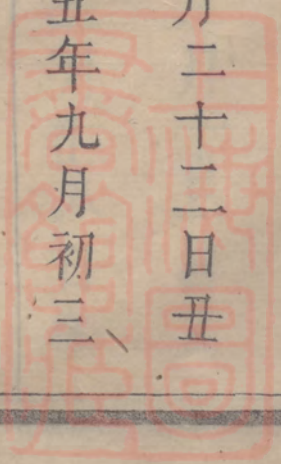 月二十二日丑
五年九月初三